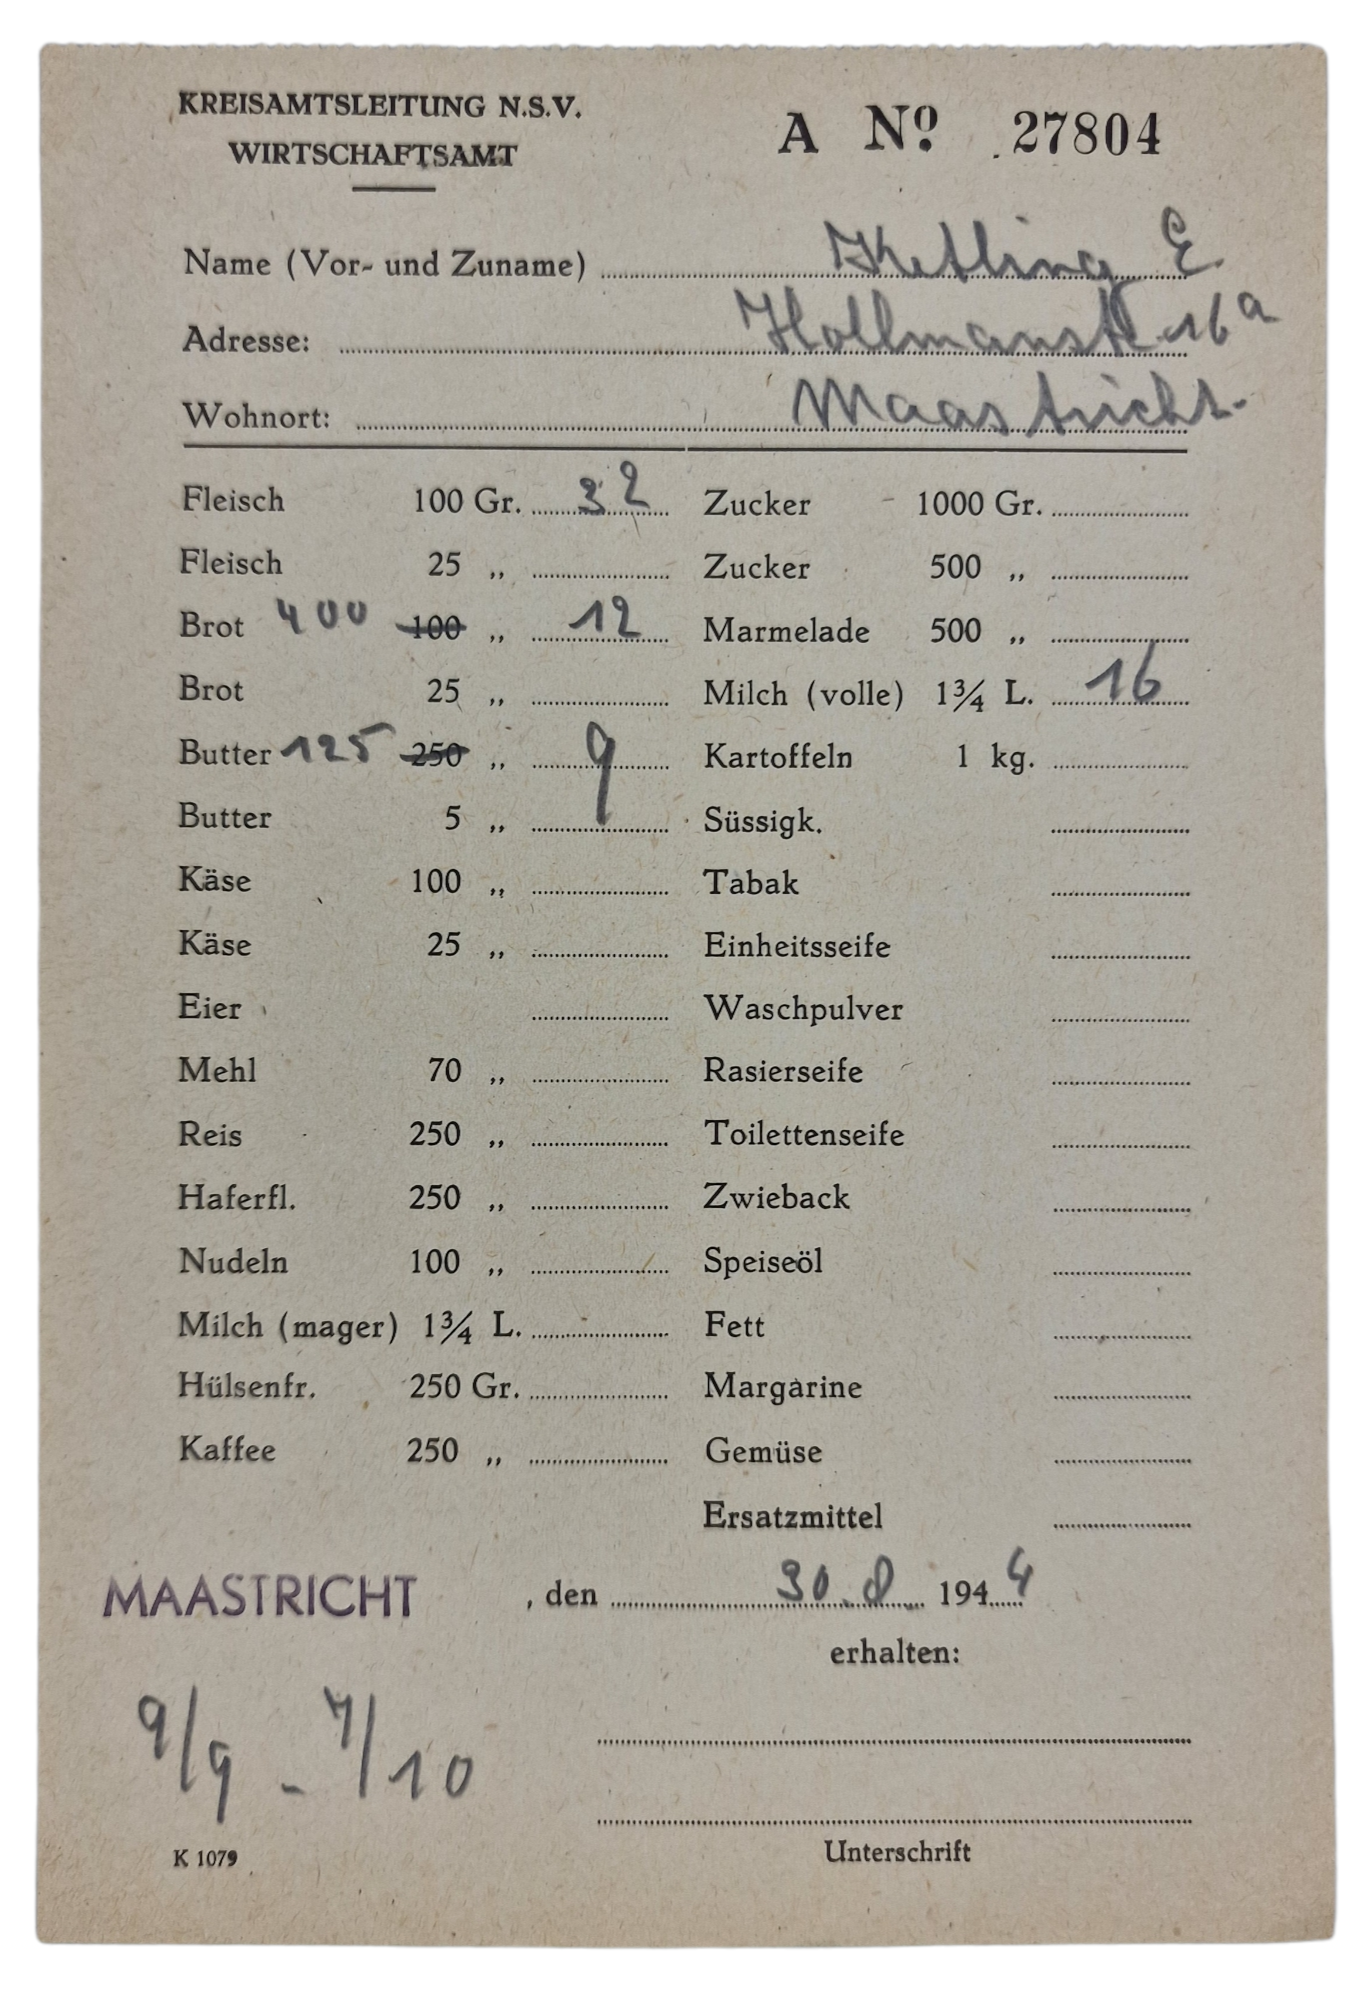 KREISAMTSLEITUNG N.S.V.
WIRTSCHAFTSAMT
A No 27804
Name (Vor- und Zuname) Ketling E
Adresse: Hollmanstr 16a
Wohnort: Maastricht.
Fleisch 100 Gr. 32 Zucker 1000 Gr.
Fleisch 25 „ Zucker 500 „
Brot 400 100 „ 12 Marmelade 500 „
Brot 25 „ Milch (volle) 1¾ L. 16
Butter 125 250 „ 9 Kartoffeln 1 kg.
Butter 5 „ Süssigk.
Käse 100 „ Tabak
Käse 25 „ Einheitsseife
Eier Waschpulver
Mehl 70 „ Rasierseife
Reis 250 „ Toilettenseife
Haferfl. 250 „ Zwieback
Nudeln 100 „ Speiseöl
Milch (mager) 1¾ L. Fett
Hülsenfr. 250 Gr. Margarine
Kaffee 250 „ Gemüse
Ersatzmittel
MAASTRICHT , den 30.8. 1944
erhalten:
9/9 - 7/10
Unterschrift
K 1079